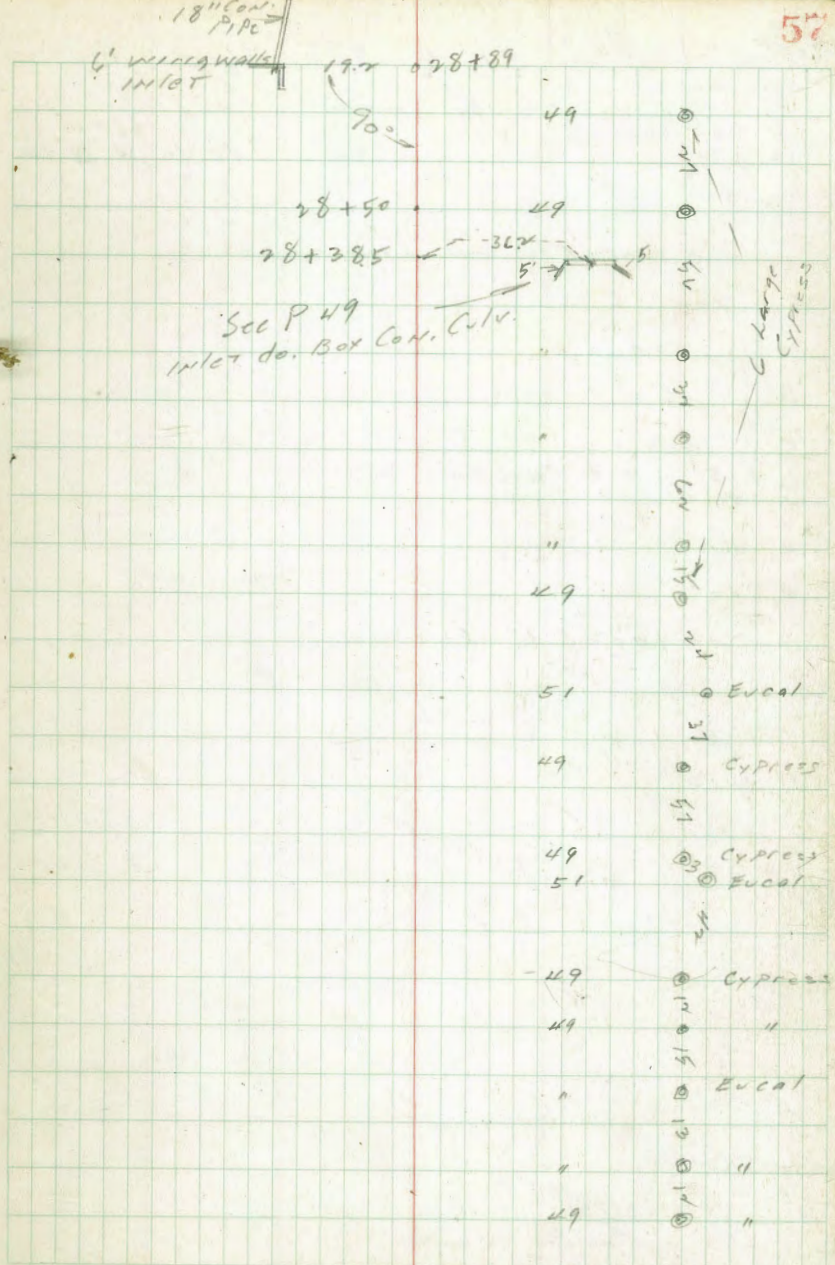 57
18" Con.
Pipe
6' wingwalls
Inlet
19.2 28+89
90°
49
28+50 49
28+38.5 36.2
5' 5
See P 49
Inlet do. Box Con. Culv.
6 Large
Cypress
"
"
"
49
51 Eucal
49 Cypress
49 Cypress
3
51 Eucal
49 Cypress
49 "
" Eucal
" "
49 "